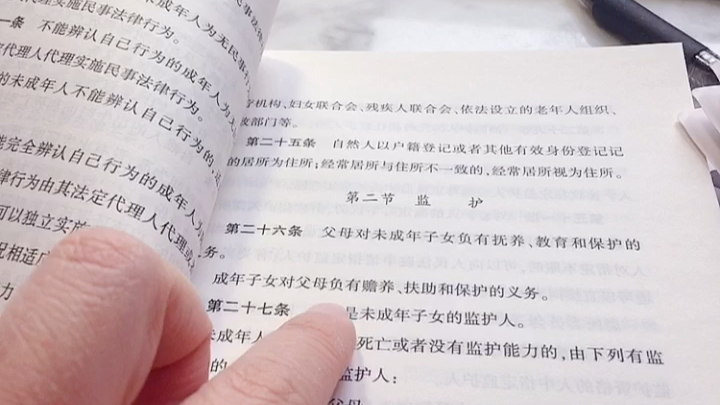 成年人为无民事行
实施民事法律行为。
一条 不能辨认自己行为的成年人为
定代理人代理实施民事法律行为。
的未成年人不能辨认自己行为的,
完全辨认自己行为的成年人为
律行为由其法定代理人代理或
可以独立实施
况相适应
力
疗机构、妇女联合会、残疾人联合会、依法设立的老年人组织、
政部门等。
第二十五条 自然人以户籍登记或者其他有效身份登记记
的居所为住所;经常居所与住所不一致的,经常居所视为住所。
第二节 监 护
第二十六条 父母对未成年子女负有抚养、教育和保护的
务。
成年子女对父母负有赡养、扶助和保护的义务。
第二十七条 是未成年子女的监护人。
未成年人 死亡或者没有监护能力的,由下列有监
的 监护人:
父母